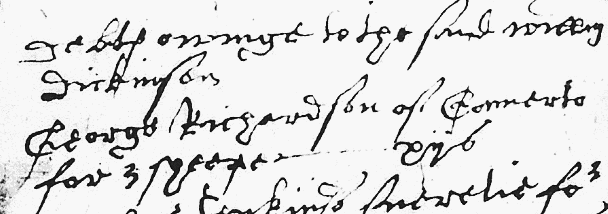 debts owinge to the said willm
Dickinson
George Richardson of Comerto
for 3 sheepe xijs
Jenkinson suretie for